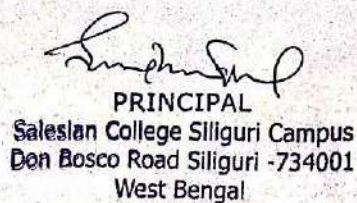 PRINCIPAL
Salesian College Siliguri Campus
Don Bosco Road Siliguri -734001
West Bengal